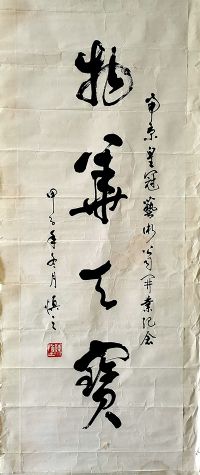 物華天寶
南京皇冠藝術公司開業紀念
甲子年冬月
慎之